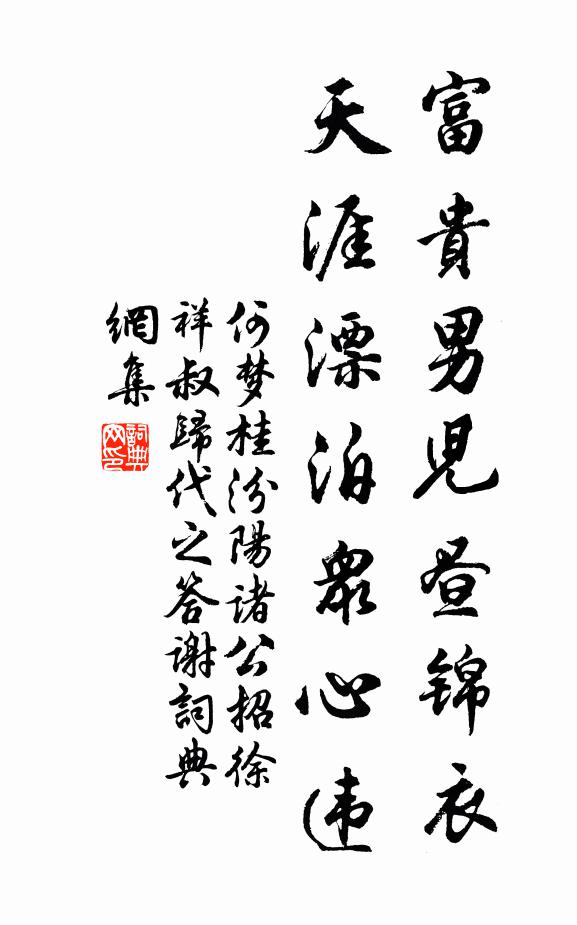 富貴男児昼錦衣
天涯漂泊衆心违
何梦桂汾陽诸公招徐
祥叔歸代之答谢詞典
網集
詞典
网印